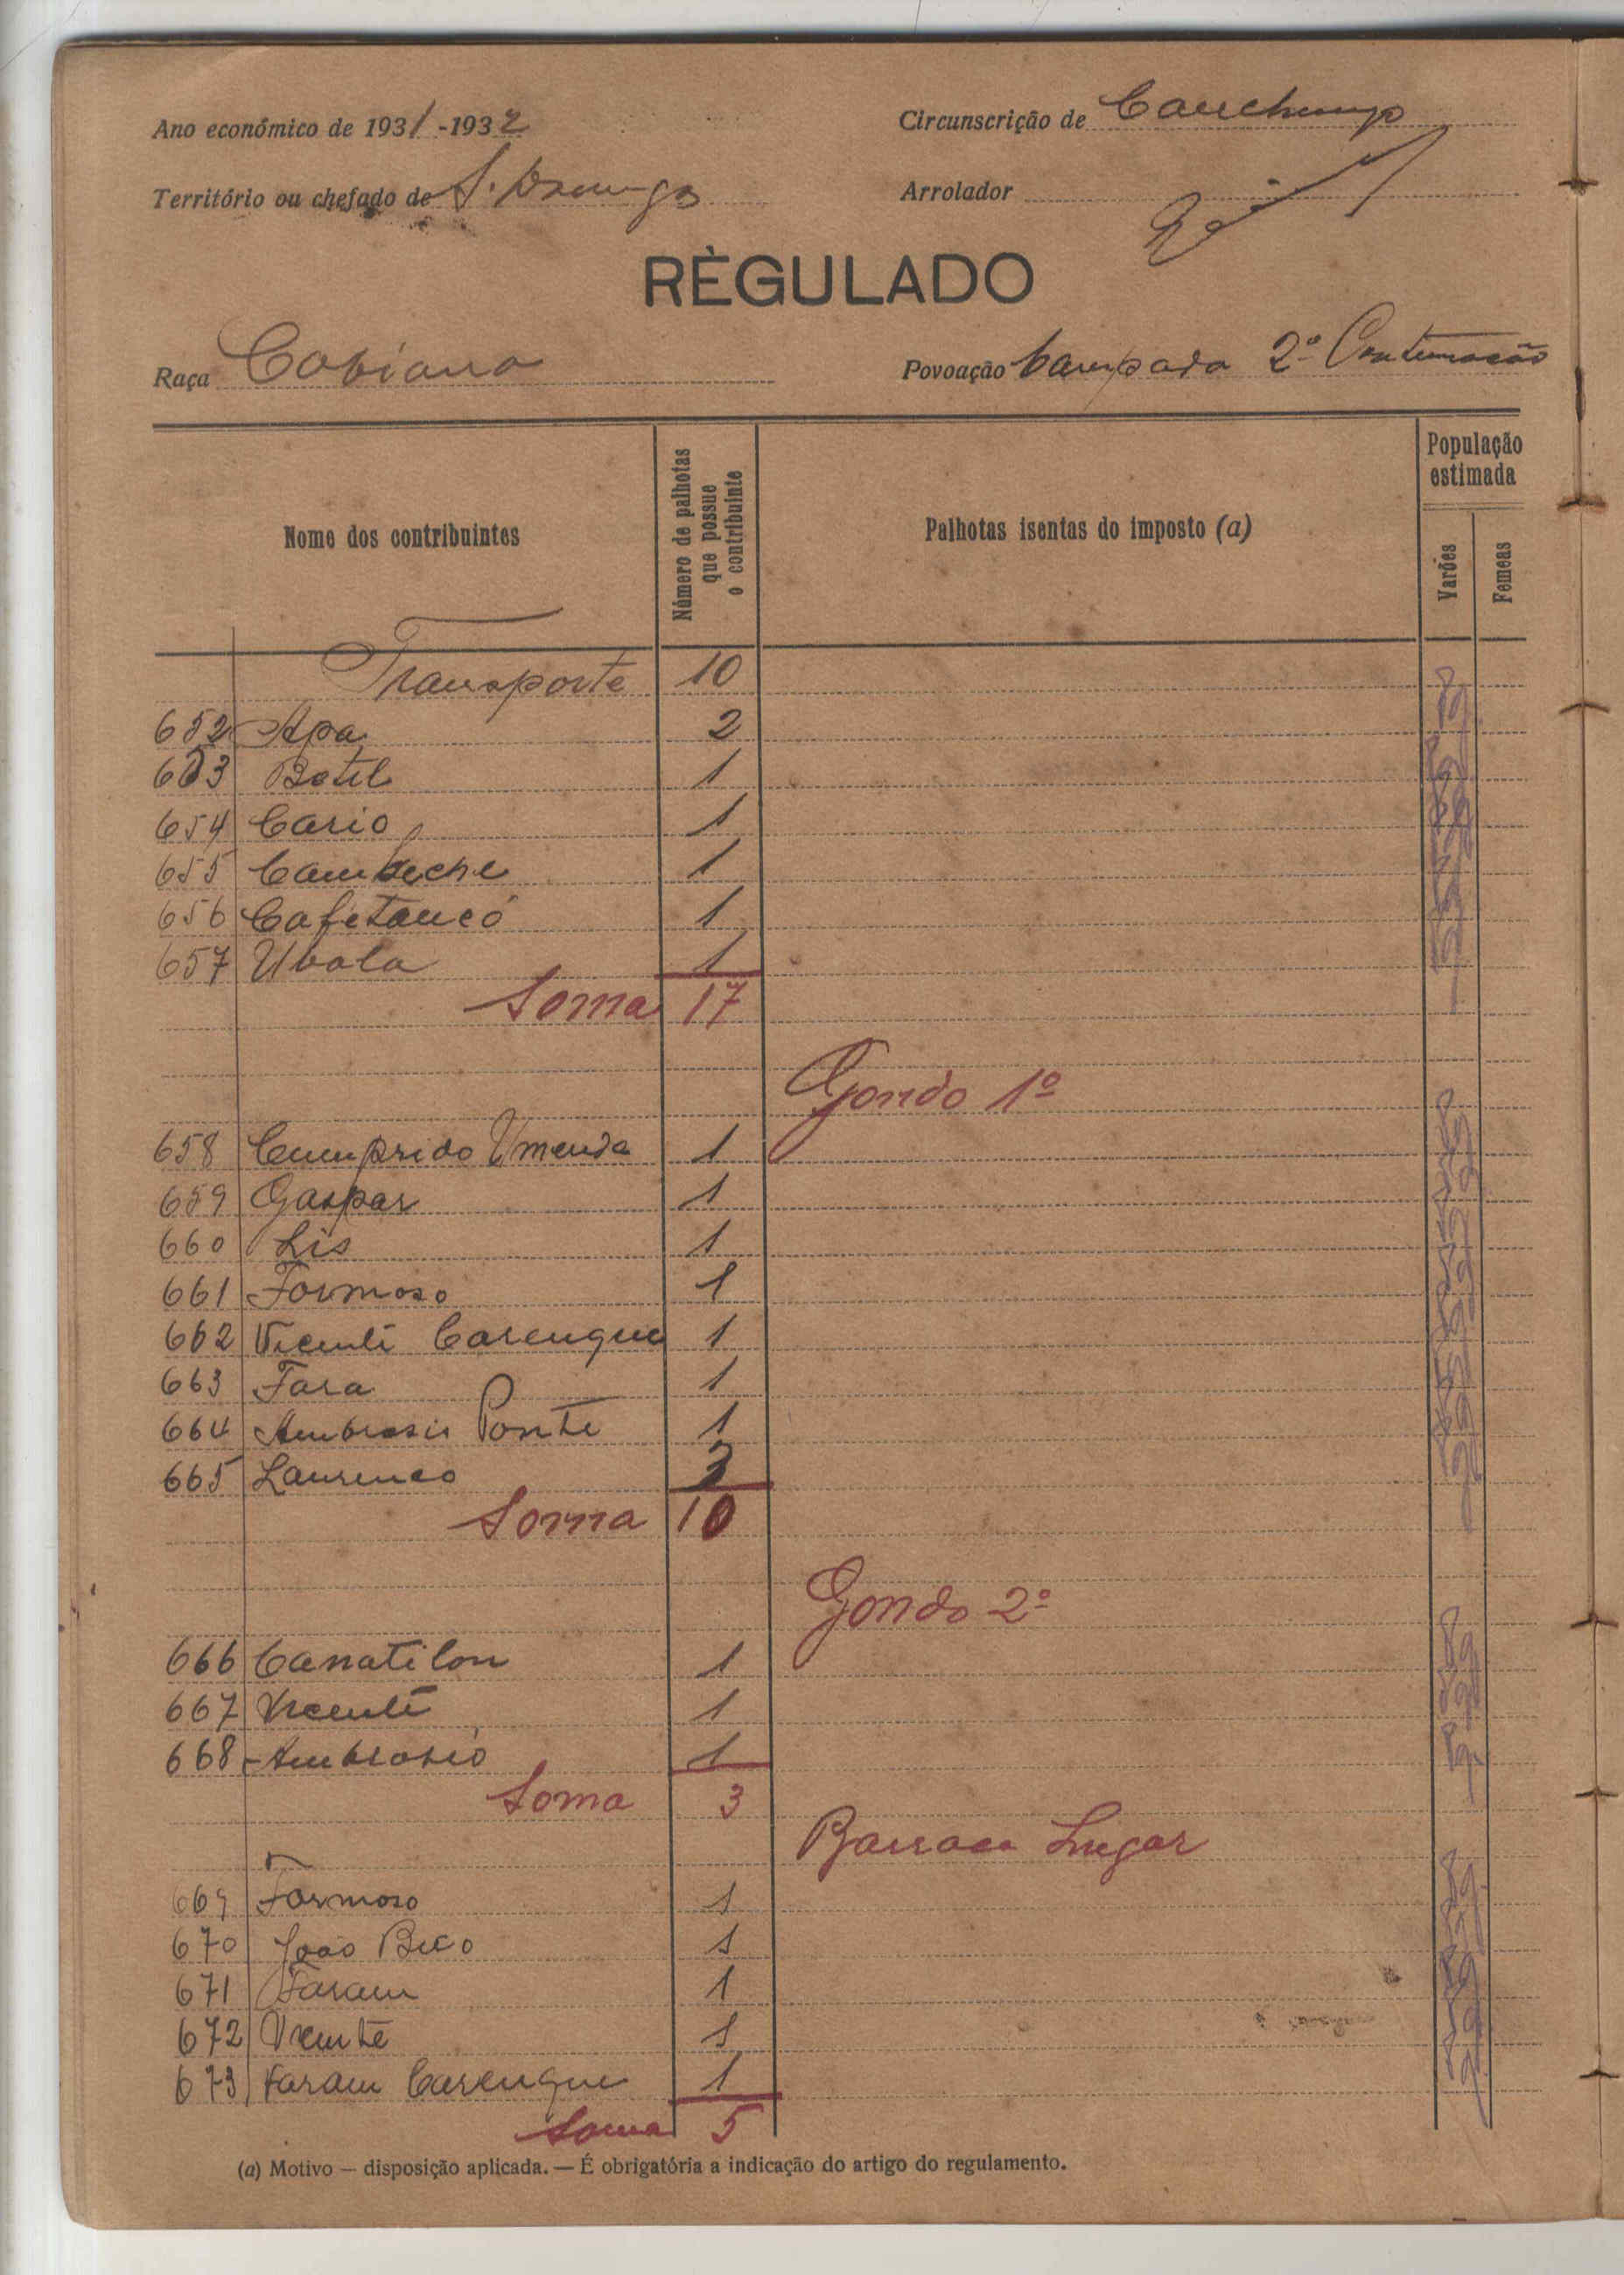 Ano económico de 1931-1932
Circunscrição de
Território ou chefado de S. Domingos
Arrolador
RÈGULADO
Raça Cobiana
Povoação Campada 2º Continuação
Nome dos contribuintes
Número de palhotas que possue o contribuinte
Palhotas isentas do imposto (a)
População estimada
Varões
Femeas
Transporte 10
652 Apa 2
653 Botil 1
654 Cario 1
655 1
656 Cafetancó 1
657 Ubala 1
Soma 17
Gondo 1º
658 Cumprido Umenda 1
659 Gaspar 1
660 Lis 1
661 Formoso 1
662 Vicenti Carengue 1
663 Fara 1
664 Ambrosio Ponte 1
665 Laurenco 3
Soma 10
Gondo 2º
666 Canatilon 1
667 Vicenti 1
668 Ambrosio 1
Soma 3
Barraca Lugar
669 Formoso 1
670 João Bico 1
671 Faram 1
672 Vicente 1
673 Faram Carengue 1
Soma 5
(a) Motivo — disposição aplicada. — É obrigatória a indicação do artigo do regulamento.